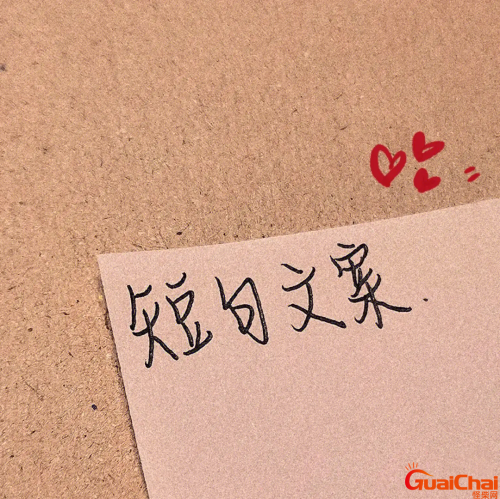 短句文案.
GuaiChai
怪柴网